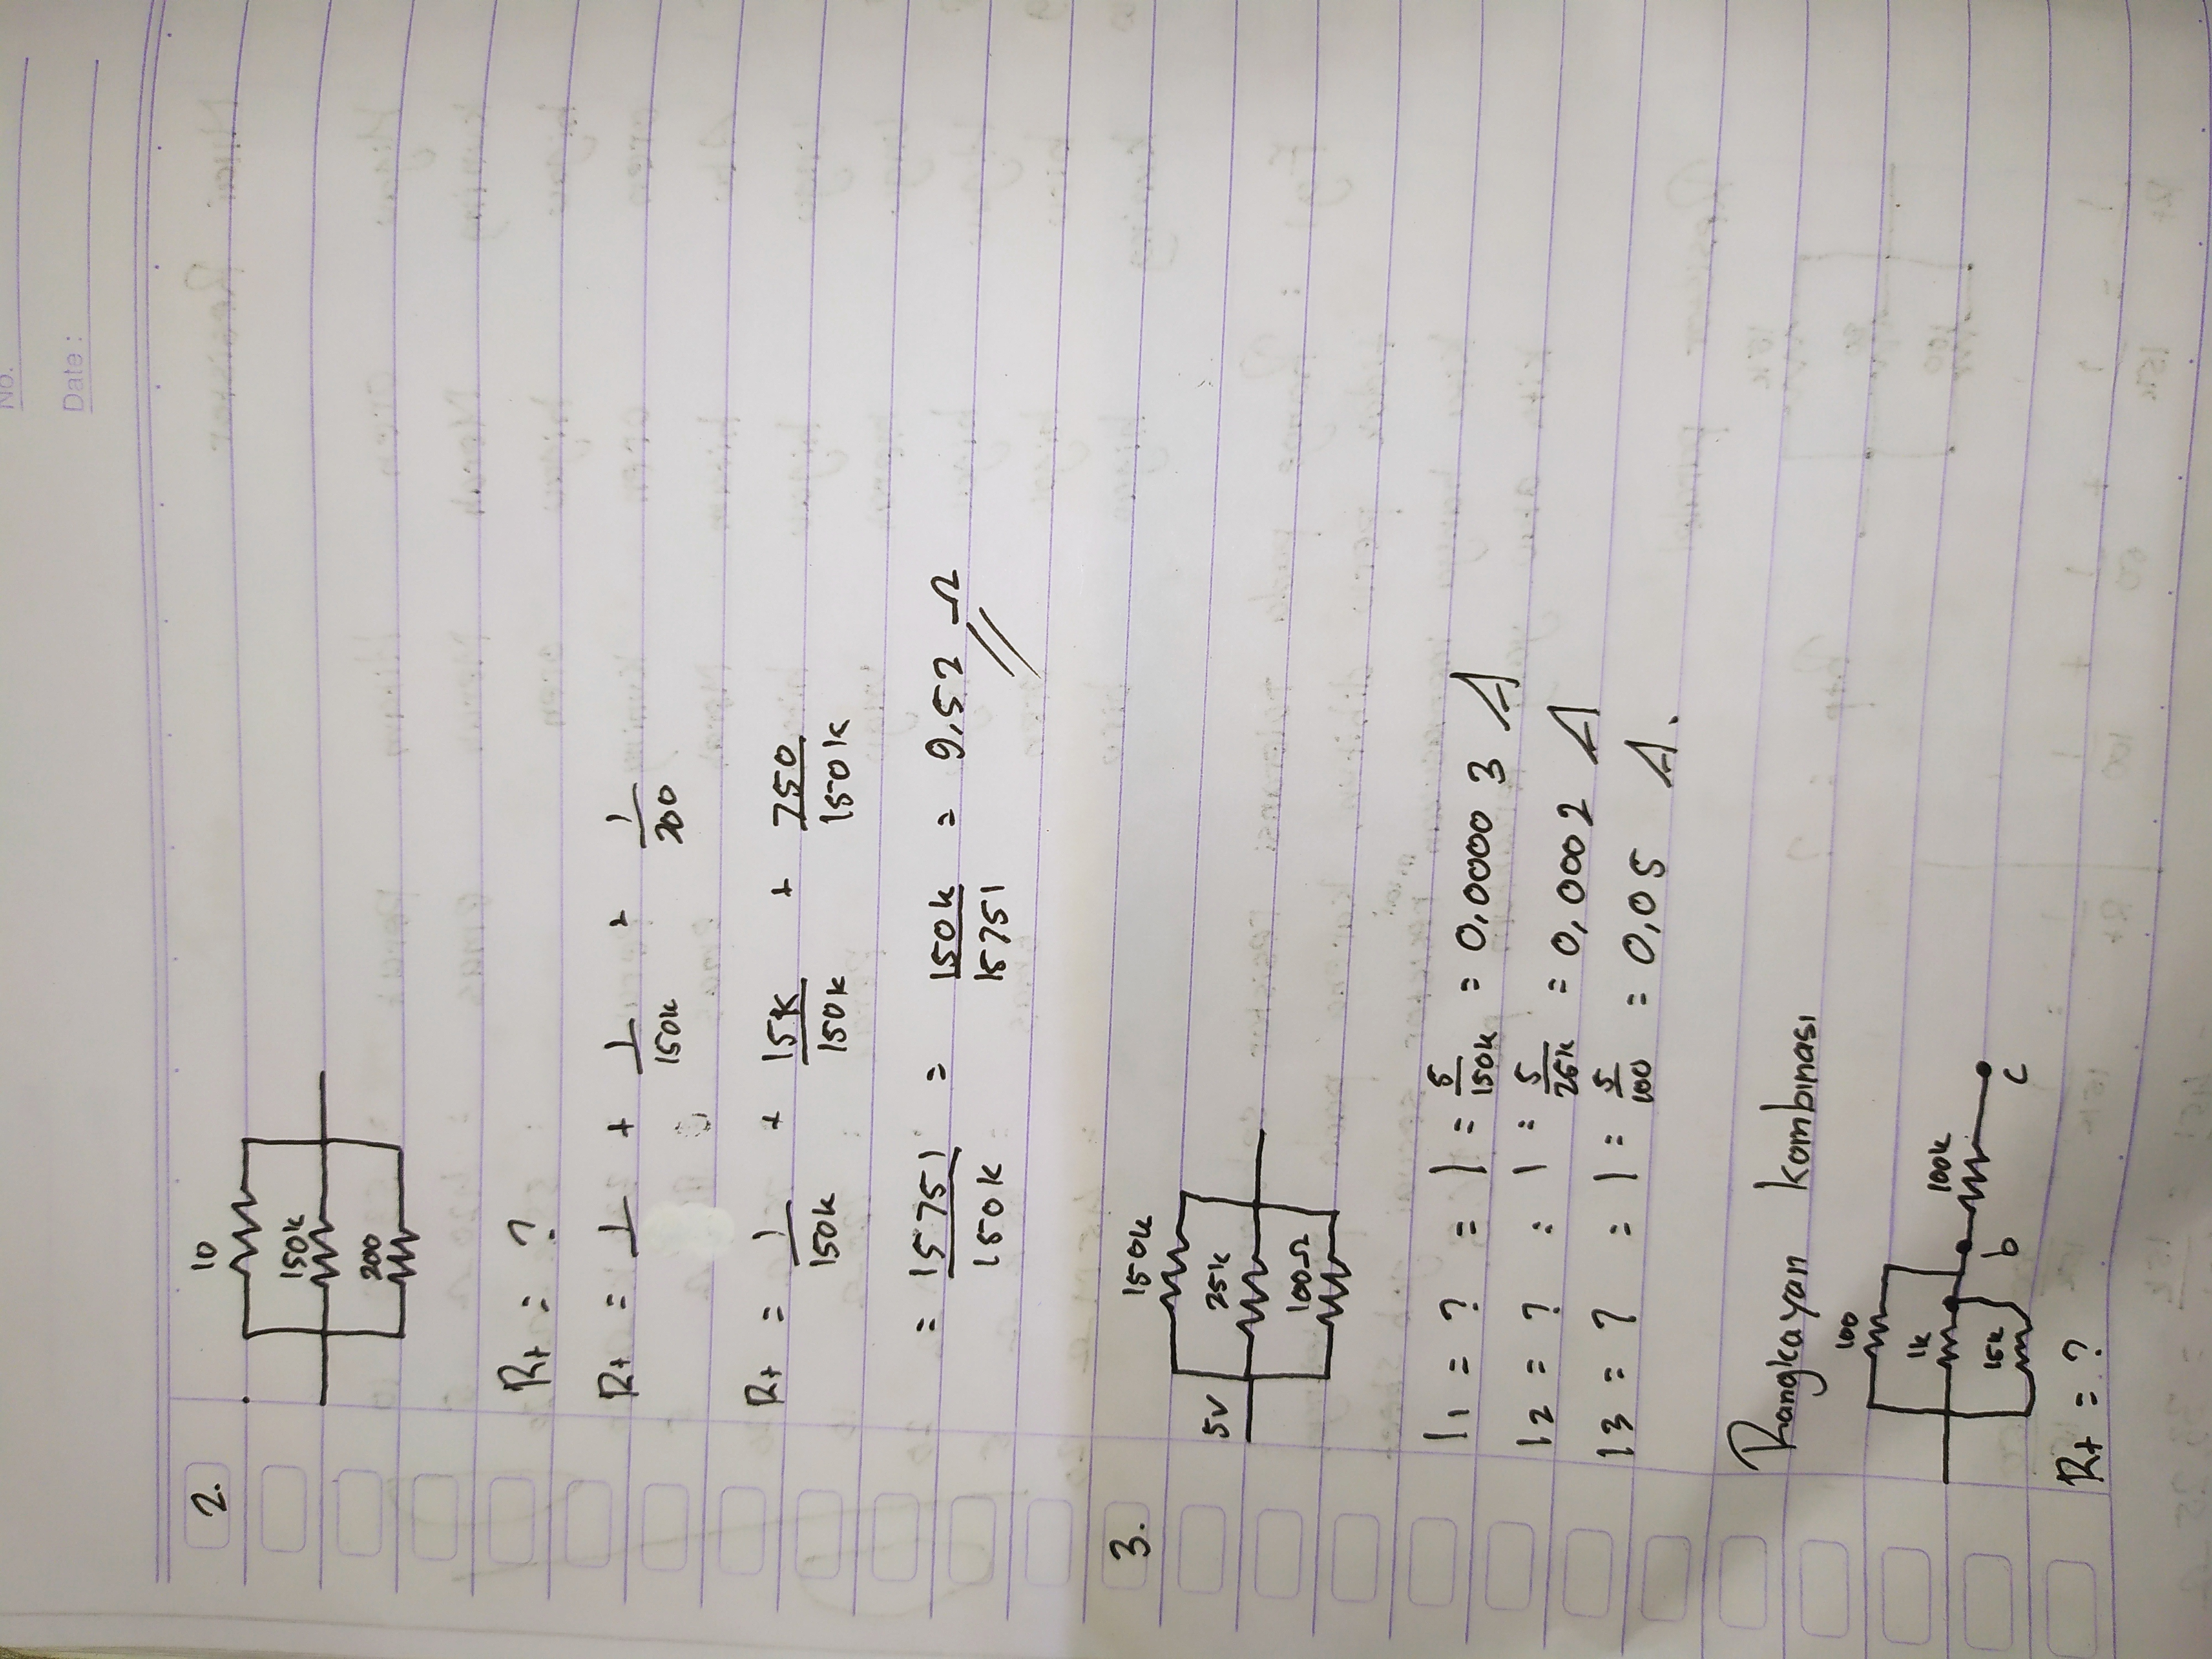 No.
Date :
2.
10
150k
200
Rt = ?
Rt = 1 + 1/150k + 1/200
Rt = 1/150k + 15k/150k + 750/150k
= 15751/150k = 150k/15751 = 9,52 Ω
3.
150k
5V
25k
100Ω
I1 = ? = I = 5/150k = 0,00003 A
I2 = ? : I = 5/25k = 0,0002 A
I3 = ? = I = 5/100 = 0,05 A.
Rangkayan kombinasi
100
1k
15k
b
100k
c
Rt = ?